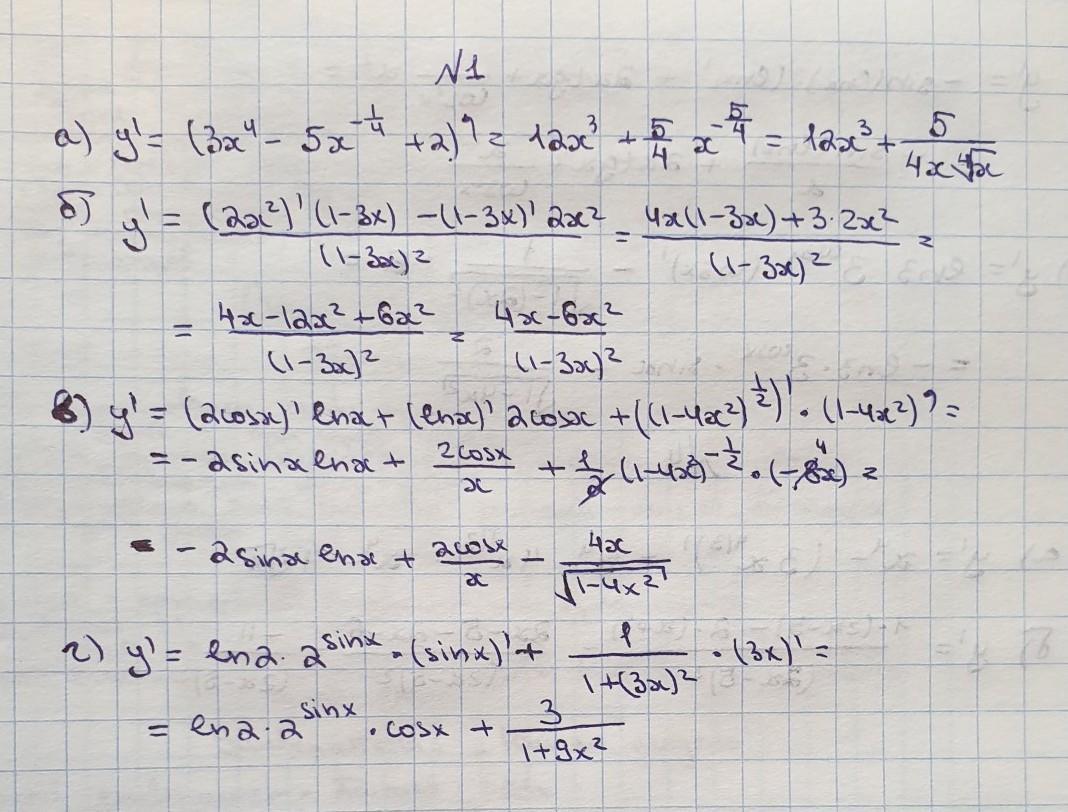 №1
а) y' = (3x⁴ - 5x^(-1/4) + 2)' = 12x³ + 5/4 x^(-5/4) = 12x³ + 5/(4x⁴√x)
б) y' = ((2x²)'(1-3x) - (1-3x)' 2x²)/(1-3x)² = (4x(1-3x) + 3·2x²)/(1-3x)² =
= (4x - 12x² + 6x²)/(1-3x)² = (4x - 6x²)/(1-3x)²
в) y' = (2cosx)' lnx + (lnx)' 2cosx + ((1-4x²)^(1/2))' · (1-4x²)' =
= -2sinx lnx + 2cosx/x + 1/2 (1-4x²)^(-1/2) · (-8x) 4 =
- 2sinx lnx + 2cosx/x - 4x/√(1-4x²)
г) y' = ln2 · 2^(sinx) · (sinx)' + 1/(1+(3x)²) · (3x)' =
= ln2 · 2^(sinx) · cosx + 3/(1+9x²)